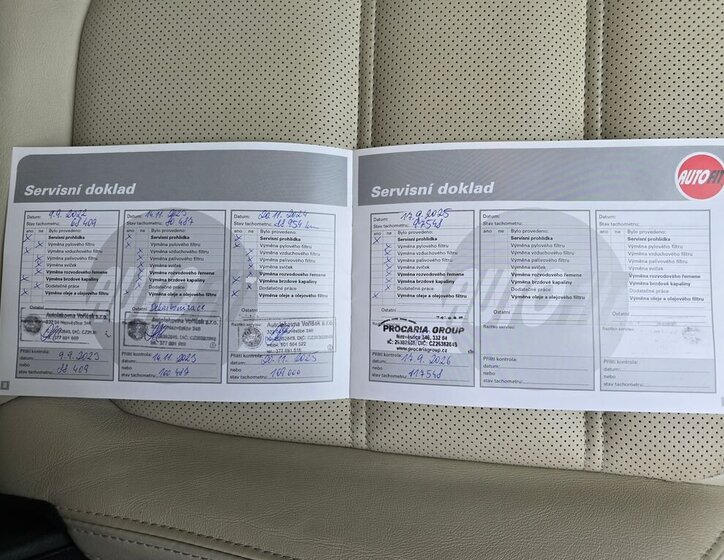 Servisní doklad
Datum: 9.9.2022
Stav tachometru:
ano ne Bylo provedeno:
Servisní prohlídka
Výměna pylového filtru
Výměna vzduchového filtru
Výměna palivového filtru
Výměna svíček
Výměna rozvodového řemene
Výměna brzdové kapaliny
Dodatečné práce
Výměna oleje a olejového filtru
Ostatní
Příští kontrola:
datum: 9.9.2023
nebo
stav tachometru:
Datum: 14.11.2023
Stav tachometru:
ano ne Bylo provedeno:
Servisní prohlídka
Výměna pylového filtru
Výměna vzduchového filtru
Výměna palivového filtru
Výměna svíček
Výměna rozvodového řemene
Výměna brzdové kapaliny
Dodatečné práce
Výměna oleje a olejového filtru
Ostatní
Příští kontrola:
datum:
nebo
stav tachometru: 100 487
Datum: 20.11.2024
Stav tachometru:
ano ne Bylo provedeno:
Servisní prohlídka
Výměna pylového filtru
Výměna vzduchového filtru
Výměna palivového filtru
Výměna svíček
Výměna rozvodového řemene
Výměna brzdové kapaliny
Dodatečné práce
Výměna oleje a olejového filtru
Ostatní
Příští kontrola:
datum: 20.11.2025
nebo
stav tachometru: 109 000
Servisní doklad
AUTOFIT
Datum: 17.9.2025
Stav tachometru: 97548
ano ne Bylo provedeno:
Servisní prohlídka
Výměna pylového filtru
Výměna vzduchového filtru
Výměna palivového filtru
Výměna svíček
Výměna rozvodového řemene
Výměna brzdové kapaliny
Dodatečné práce
Výměna oleje a olejového filtru
Ostatní
PROCARIA GROUP
Nezvěstice 346, 332 04
www.procariagroup.cz
Příští kontrola:
datum: 17.9.2026
nebo
stav tachometru: 117548
Datum:
Stav tachometru:
ano ne Bylo provedeno:
Servisní prohlídka
Výměna pylového filtru
Výměna vzduchového filtru
Výměna palivového filtru
Výměna svíček
Výměna rozvodového řemene
Výměna brzdové kapaliny
Dodatečné práce
Výměna oleje a olejového filtru
Ostatní
Razítko servisu:
Příští kontrola:
datum:
nebo
stav tachometru:
Datum:
Stav tachometru:
ano ne Bylo provedeno:
Servisní prohlídka
Výměna pylového filtru
Výměna vzduchového filtru
Výměna palivového filtru
Výměna svíček
Výměna rozvodového řemene
Výměna brzdové kapaliny
Dodatečné práce
Výměna oleje a olejového filtru
Ostatní
Razítko servisu:
Příští kontrola:
datum:
nebo
stav tachometru: